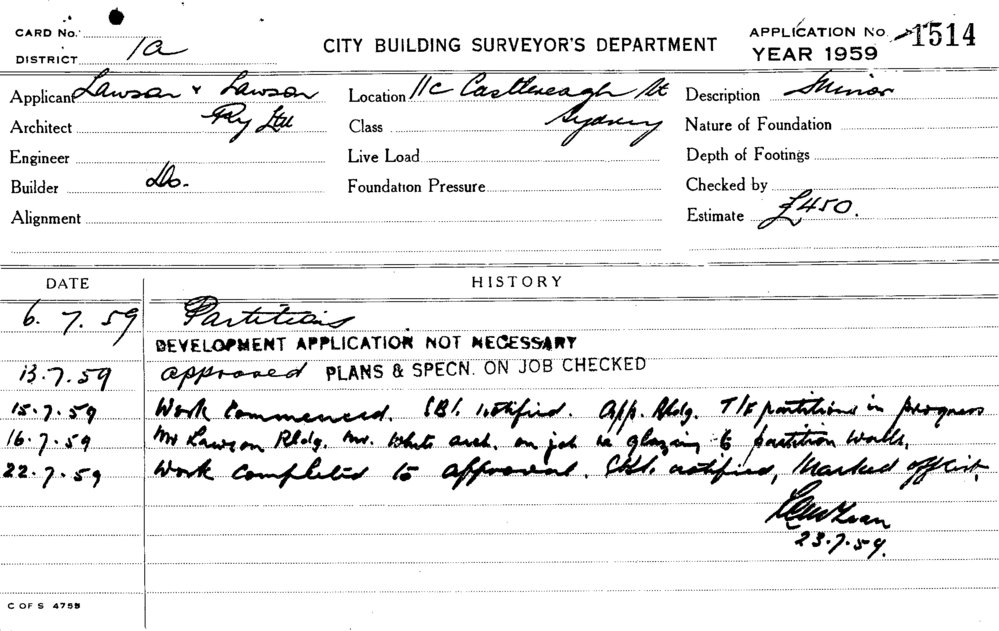 CARD No.
DISTRICT 1a
CITY BUILDING SURVEYOR'S DEPARTMENT
APPLICATION No. 1514
YEAR 1959
Applicant Lawson & Lawson
Pty Ltd
Location 11c Castlereagh St
Sydney
Description Minor
Architect
Class
Nature of Foundation
Engineer
Live Load
Depth of Footings
Builder Do.
Foundation Pressure
Checked by
Alignment
Estimate £450.
DATE HISTORY
6.7.59 Partitions
DEVELOPMENT APPLICATION NOT NECESSARY
13.7.59 approved PLANS & SPECN. ON JOB CHECKED
15.7.59 Work Commenced. notified. App. Bldg. T/F partitions in progress
16.7.59 Mr Lawson Bldg. Mr. White arch. on job re glazing to partition walls.
22.7.59 Work Completed to approval. notified, Marked off list
23.7.59.
C OF S 475B